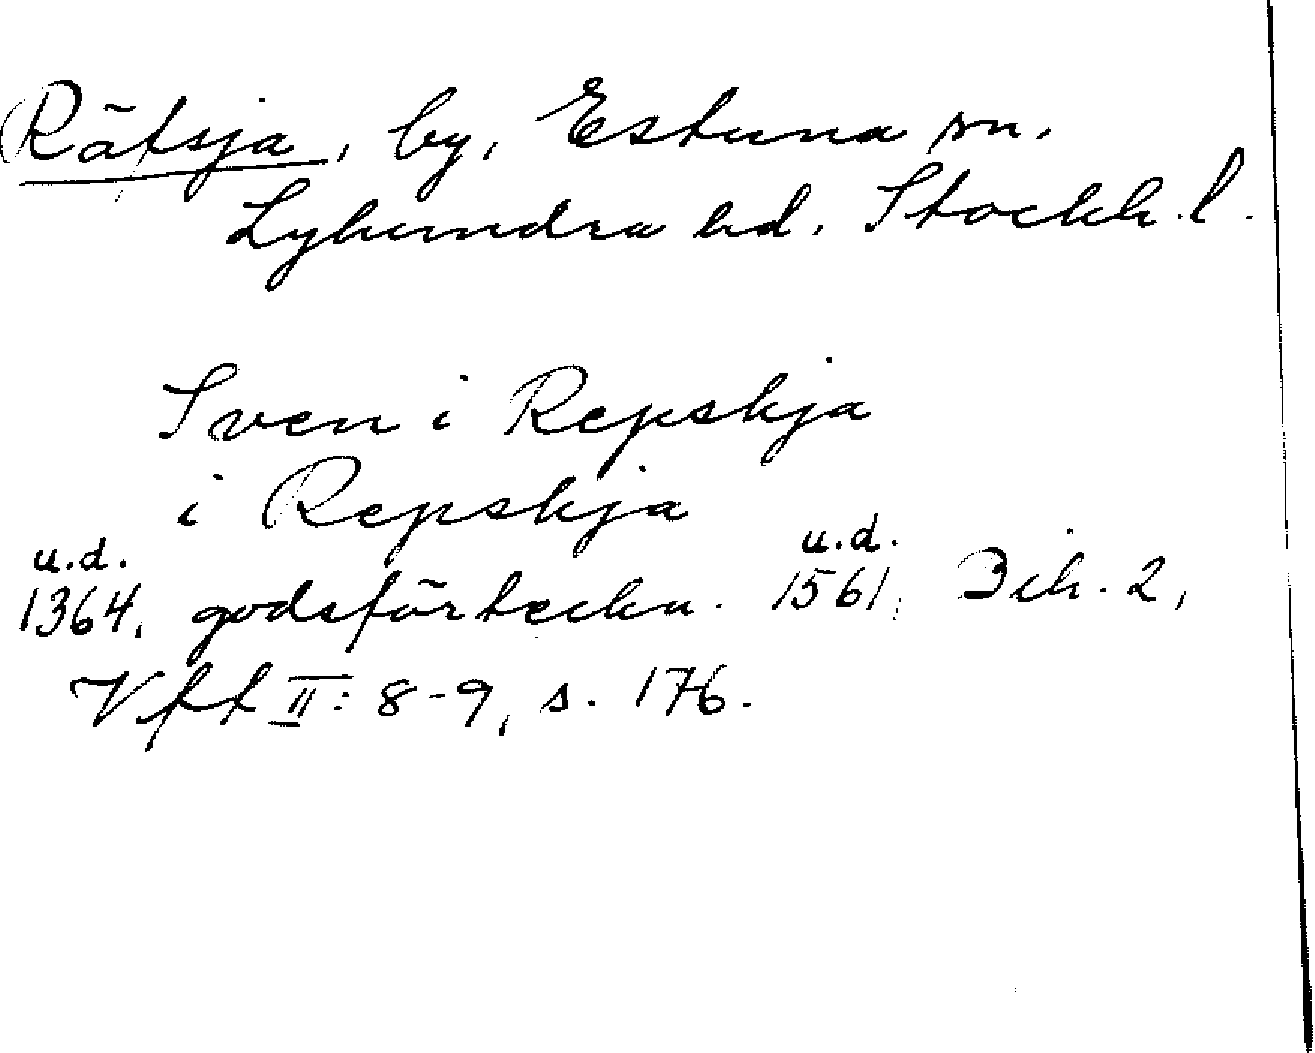 Rätsja, by, Estuna sn.
Lyhundra hd. Stockh. l.
Sven i Repskja
i Repskja
u.d. u.d.
1364, godsförteckn. 1561, Bih. 2,
Vff II: 8-9, s. 176.